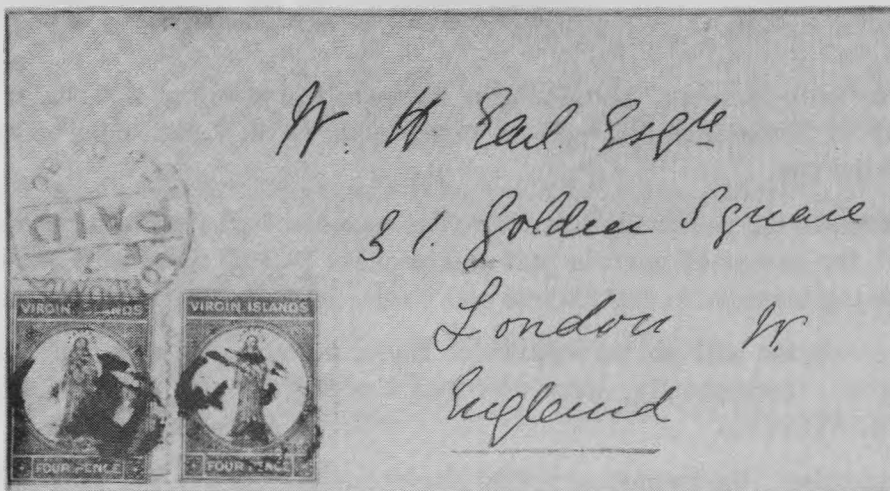 W. H Earl. Esqre
31. Golden Square
London W
England
LONDON
PAID
VIRGIN ISLANDS
FOUR PENCE
VIRGIN ISLANDS
FOUR PENCE